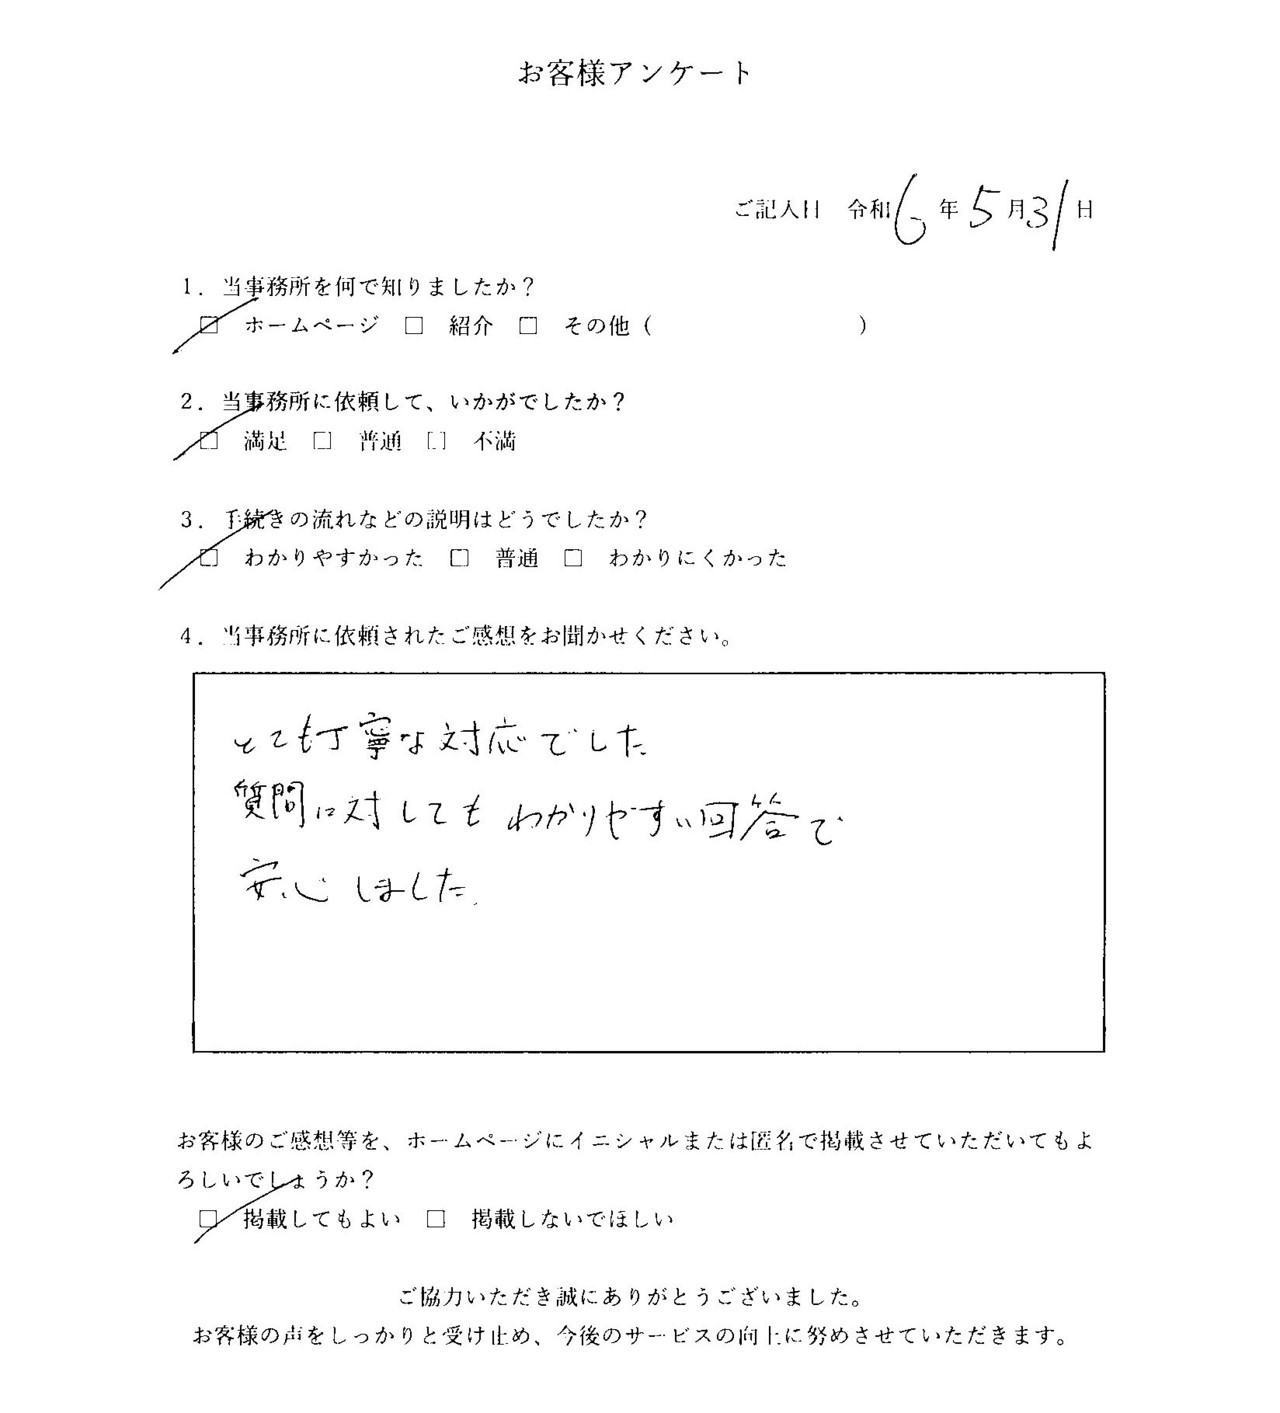 お客様アンケート
ご記入日 令和6年5月31日
1．当事務所を何で知りましたか？
☑ ホームページ □ 紹介 □ その他（ ）
2．当事務所に依頼して、いかがでしたか？
☑ 満足 □ 普通 □ 不満
3．手続きの流れなどの説明はどうでしたか？
☑ わかりやすかった □ 普通 □ わかりにくかった
4．当事務所に依頼されたご感想をお聞かせください。
とても丁寧な対応でした
質問に対してもわかりやすい回答で
安心しました.
お客様のご感想等を、ホームページにイニシャルまたは匿名で掲載させていただいてもよ
ろしいでしょうか？
☑ 掲載してもよい □ 掲載しないでほしい
ご協力いただき誠にありがとうございました。
お客様の声をしっかりと受け止め、今後のサービスの向上に努めさせていただきます。